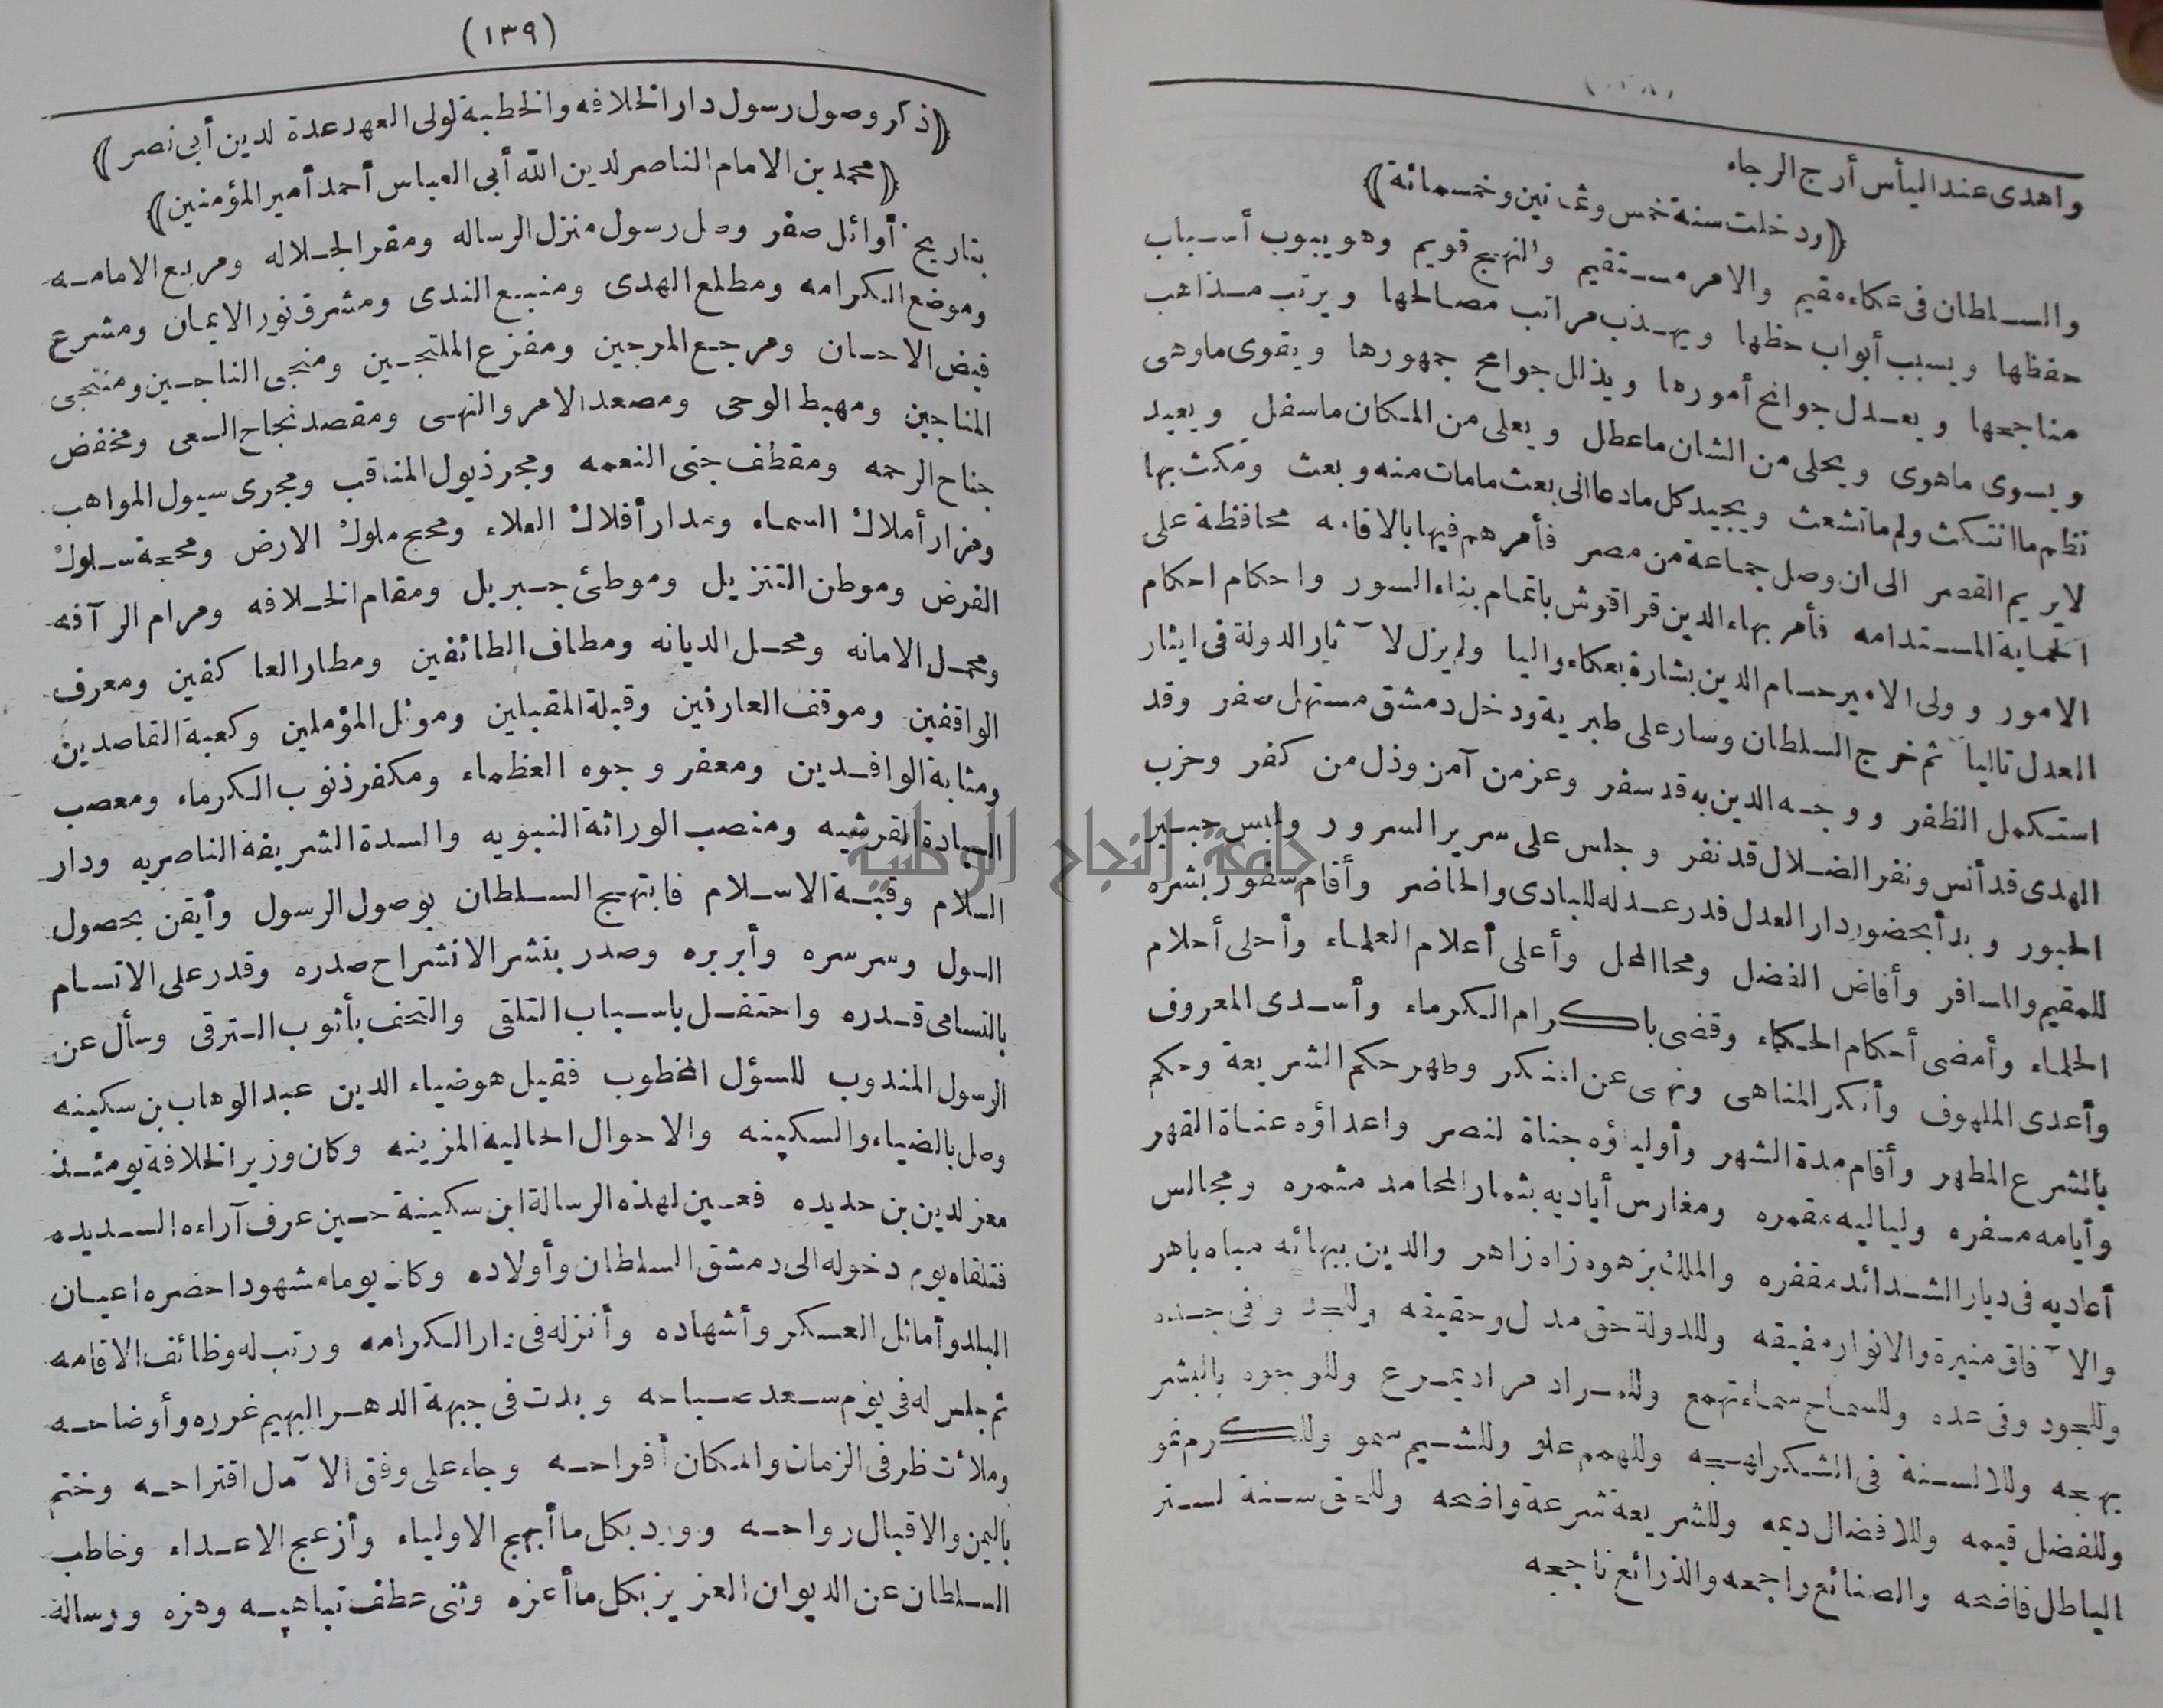 واهدى عند اليأس أرج الرجاء
﴿ودخلت سنة خمس وثمانين وخمسمائة﴾
والسلطان في عكاء مقيم والامر مستقيم والنهج قويم وهو يبوب أسباب
حفظها ويسبب أبواب حظها ويهذب مراتب مصالحها ويرتب مذاهب
مناجحها ويعدل جوانح أمورها ويذلل جوامح جمهورها ويقوى ما وهى
ويسوى ما هوى ويحلى من الشان ما عطل ويعلى من المكان ما سفل ويعيد
نظم ما انتكث ولم ما تشعث ويجيد كل ما دعا الى بعث ما مات منه وبعث ومكث بها
لا يريم القصر الى ان وصل جماعة من مصر فأمرهم فيها بالاقامه محافظة على
الحماية المستدامه فأمر بهاء الدين قراقوش باتمام بناء السور واحكام احكام
الامور وولى الامير حسام الدين بشارة بعكاء واليا ولم يزل لآثار الدولة في ايثار
العدل تاليا ثم خرج السلطان وسار على طبرية ودخل دمشق مستهل صفر وقد
استكمل الظفر ووجه الدين به قد سفر وعز من آمن وذل من كفر وحزب
الهدى قد أنس ونفر الضلال قد نفر وجلس على سرير السرور ولبس حبير
الحبور وبدأ بحضور دار العدل فدر عدله للبادى والحاضر وأقام سفور بشره
للمقيم والمسافر وأفاض الفضل ومحا المحل وأعلى أعلام العلماء وأحلى أحلام
الحلماء وأمضى أحكام الحكماء وقضى باكرام الكرماء وأسدى المعروف
وأعدى الملهوف وأنكر المناهى ونهى عن المنكر وطهر حكم الشريعة وحكم
بالشرع المطهر وأقام مدة الشهر وأولياؤه جناة لنصر واعداؤه عناة القهر
وأيامه مسفره ولياليه مقمره ومغارس أياديه بثمار المحامد مثمره ومجالس
أعاديه في ديار الشدائد مقفره والملك بزهوه زاه زاهر والدين ببهائه مباه باهر
والآفاق منيرة والانوار مفيقه وللدولة حق مدل وحقيقه وللجد وفي جده
وللجود وفى عده وللسماح سماء تهمع وللمراد مراد يمرع وللوجوه بالبشر
بهجه وللالسنة في الشكر لهجه وللهمم علو وللشيم سمو وللكرم نمو
وللفضل قيمه وللافضال ديمه وللشريعة شرعة واضحه وللحق سنة لستر
الباطل فاضحه والصنائع راجحه والذرائع ناجحه
(١٣٩)
﴿ذكر وصول رسول دار الخلافه والخطبة لولى العهد عدة لدين أبى نصر﴾
﴿محمد بن الامام الناصر لدين الله أبى العباس أحمد أمير المؤمنين﴾
بتاريخ أوائل صفر وصل رسول منزل الرساله ومقر الجلاله ومربع الامامه
وموضع الكرامه ومطلع الهدى ومنبع الندى ومشرق نور الايمان ومشرع
فيض الاحسان ومرجع المرجين ومفزع الملتجين ومنجى الناجين ومنتجى
المناجين ومهبط الوحى ومصعد الامر والنهى ومقصد نجاح السعى ومخفض
جناح الرحمه ومقطف جنى النعمه ومجر ذيول المناقب ومجرى سيول المواهب
ومزار أملاك السماء ومدار أفلاك العلاء ومحج ملوك الارض ومحجة سلوك
الفرض وموطن التنزيل وموطئ جبريل ومقام الخلافه ومرام الرآفه
ومحمل الامانه ومحل الديانه ومطاف الطائفين ومطار العاكفين ومعرف
الواقفين وموقف العارفين وقبلة المقبلين وموئل المؤملين وكعبة القاصدين
ومثابة الوافدين ومعفر وجوه العظماء ومكفر ذنوب الكرماء ومعصب
السيادة القرشيه ومنصب الوراثة النبويه والسدة الشريفة الناصريه ودار
السلام وقبة الاسلام فابتهج السلطان بوصول الرسول وأيقن بحصول
السول وسر سره وأبر بره وصدر بنشر الانشراح صدره وقدر على الاتسام
بالتسامى قدره واحتفل باسباب التلقى والتحف بأثوب الترقى وسأل عن
الرسول المندوب للسؤل المخطوب فقيل هو ضياء الدين عبد الوهاب بن سكينه
وصل بالضياء والسكينه والاحوال الحالية المزينه وكان وزير الخلافة يومئذ
معز لدين بن حديده فعين لهذه الرسالة ابن سكينة حين عرف آراءه السديده
فتلقاه يوم دخوله الى دمشق السلطان وأولاده وكان يوما مشهودا حضره اعيان
البلد وأماثل العسكر وأشهاده وأنزله في دار الكرامه ورتب له وظائف الاقامه
ثم جلس له في يوم سعد صباحه وبدت في جبهة الدهر البهيم غرره وأوضاحه
وملأت ظرفى الزمان والمكان أفراحه وجاء على وفق الآمل اقتراحه وختم
باليمن والاقبال رواحه وورد بكل ما أبهج الاولياء وأزعج الاعداء وخاطب
السلطان عن الديوان العزيز بكل ما أعزه وثنى عطف تباهيه وهزه ورسالة
جامعة النجاح الوطنية